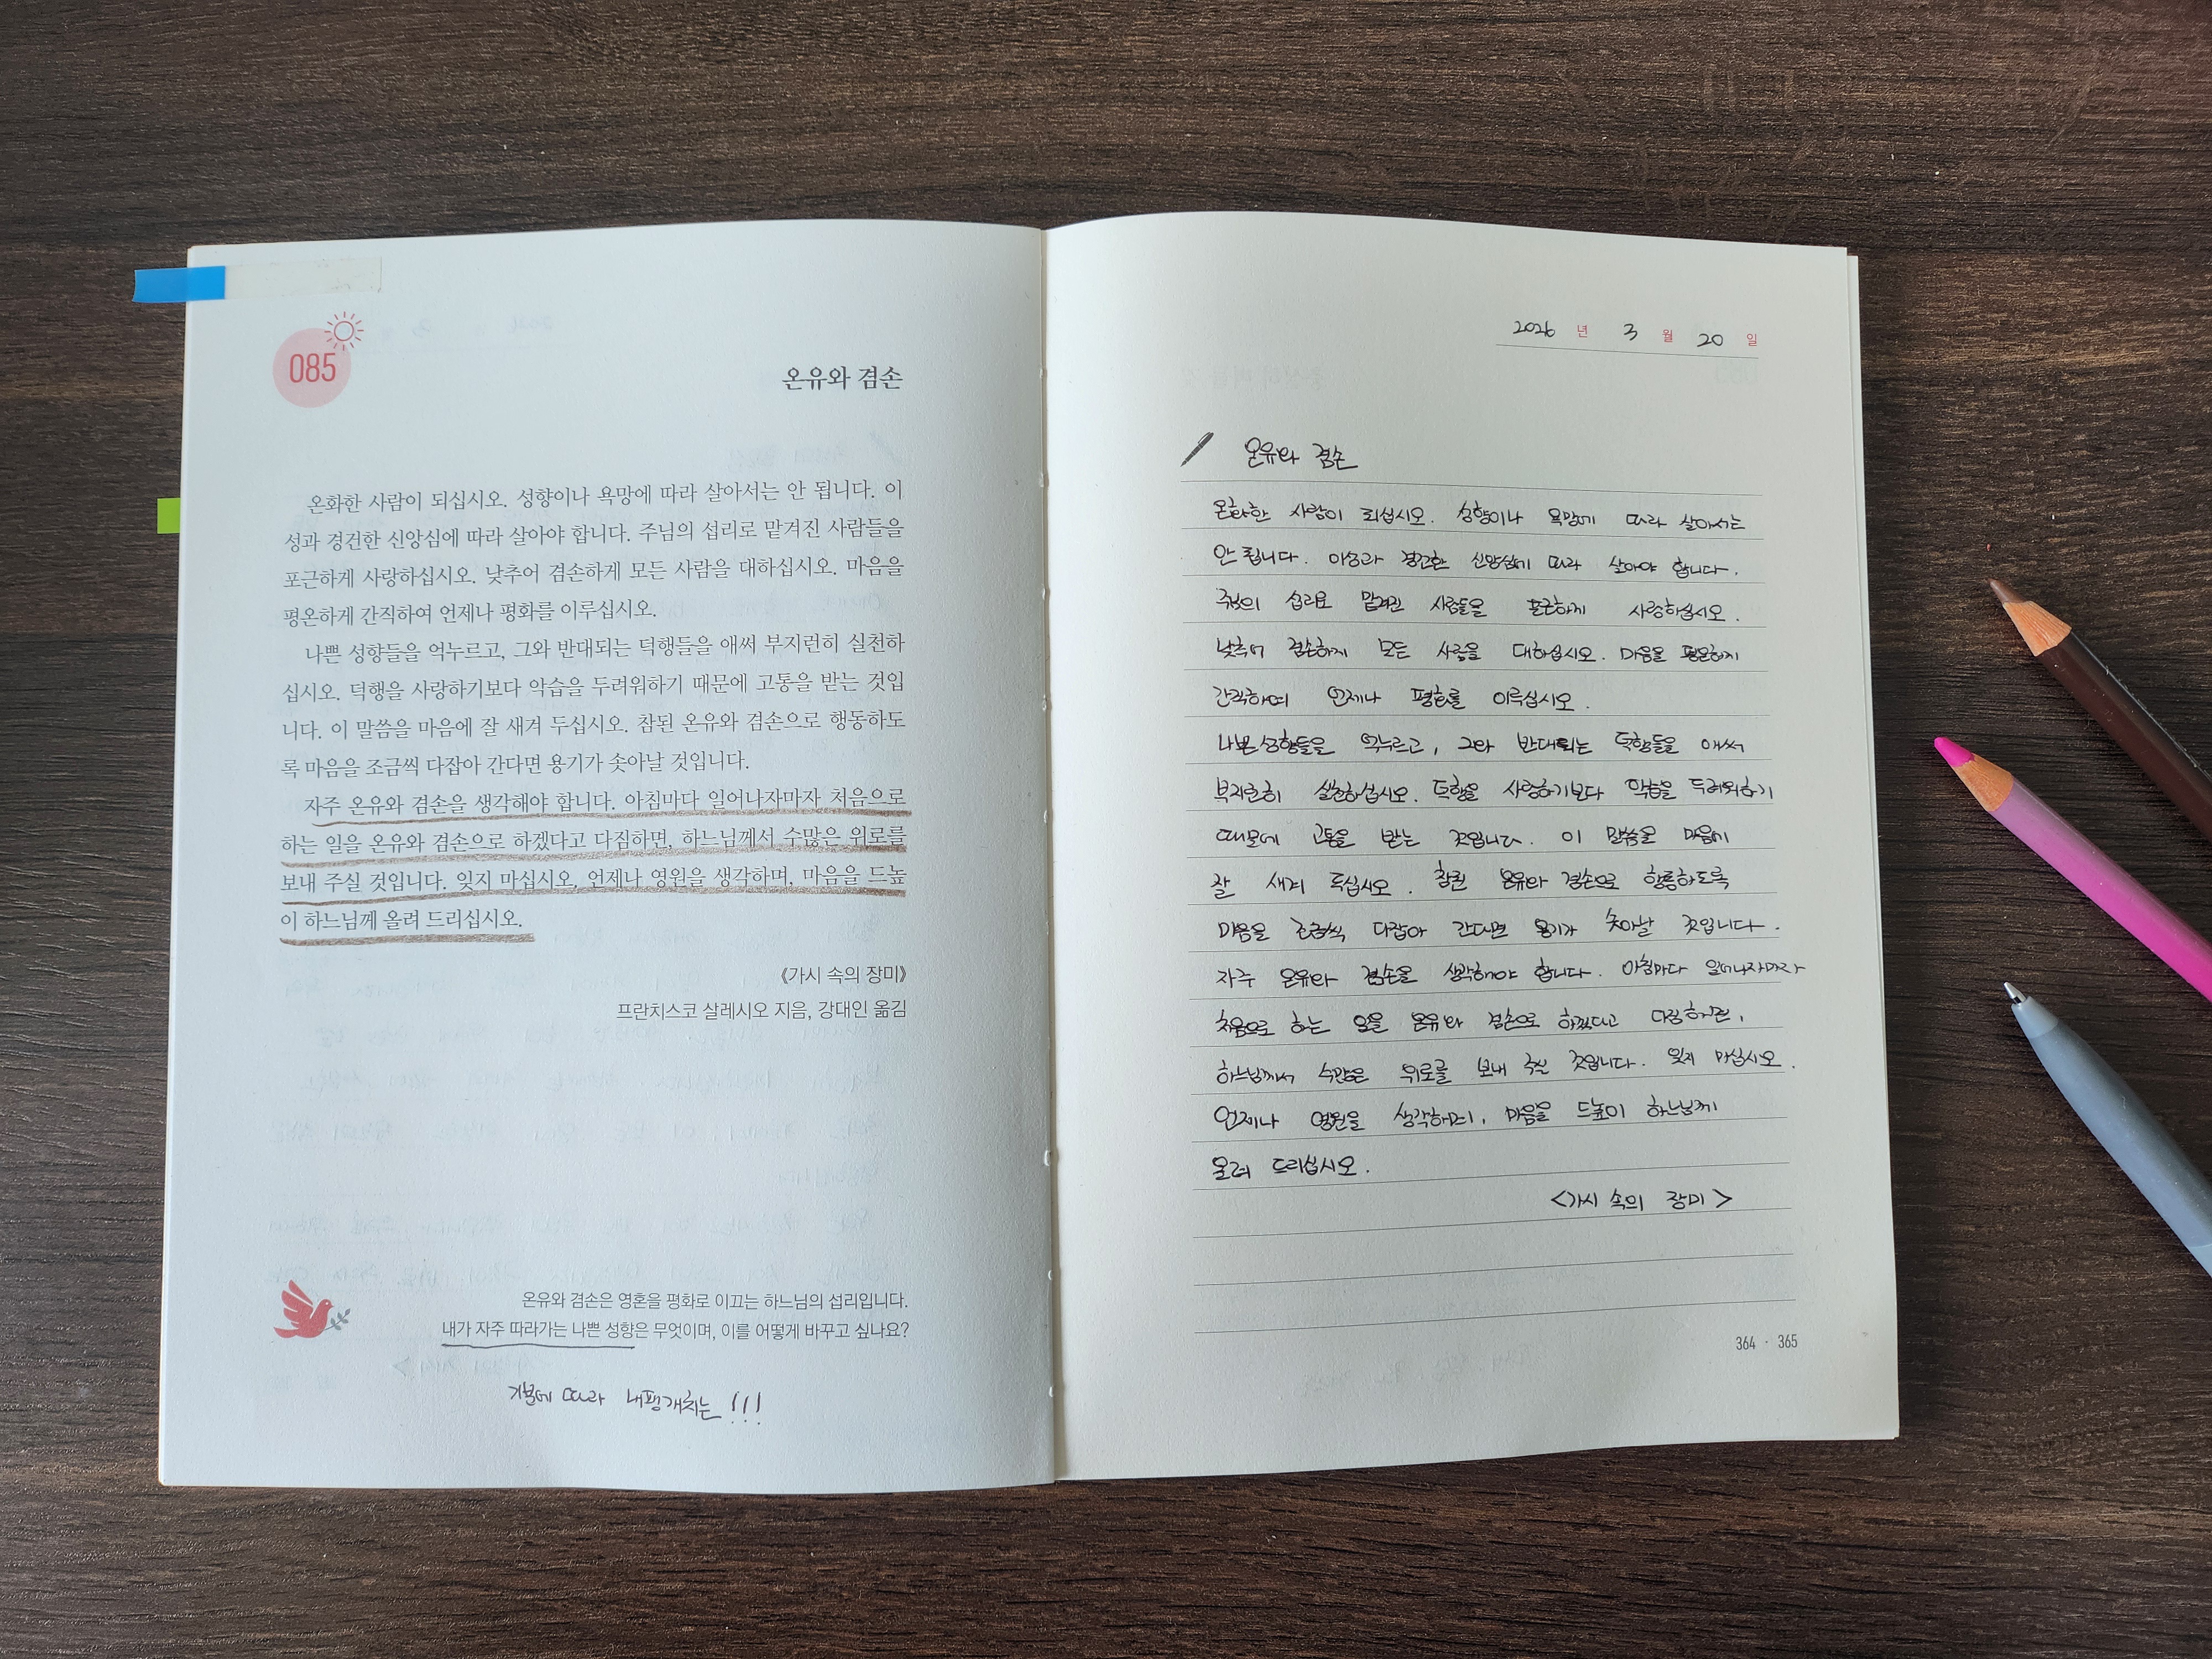 085
온유와 겸손
온화한 사람이 되십시오. 성향이나 욕망에 따라 살아서는 안 됩니다. 이
성과 경건한 신앙심에 따라 살아야 합니다. 주님의 섭리로 맡겨진 사람들을
포근하게 사랑하십시오. 낮추어 겸손하게 모든 사람을 대하십시오. 마음을
평온하게 간직하여 언제나 평화를 이루십시오.
나쁜 성향들을 억누르고, 그와 반대되는 덕행들을 애써 부지런히 실천하
십시오. 덕행을 사랑하기보다 악습을 두려워하기 때문에 고통을 받는 것입
니다. 이 말씀을 마음에 잘 새겨 두십시오. 참된 온유와 겸손으로 행동하도
록 마음을 조금씩 다잡아 간다면 용기가 솟아날 것입니다.
자주 온유와 겸손을 생각해야 합니다. 아침마다 일어나자마자 처음으로
하는 일을 온유와 겸손으로 하겠다고 다짐하면, 하느님께서 수많은 위로를
보내 주실 것입니다. 잊지 마십시오, 언제나 영원을 생각하며, 마음을 드높
이 하느님께 올려 드리십시오.
《가시 속의 장미》
프란치스코 살레시오 지음, 강대인 옮김
온유와 겸손은 영혼을 평화로 이끄는 하느님의 섭리입니다.
내가 자주 따라가는 나쁜 성향은 무엇이며, 이를 어떻게 바꾸고 싶나요?
기분에 따라 내팽개치는 !!!
2026 년 3 월 20 일
온유와 겸손
온화한 사람이 되십시오. 성향이나 욕망에 따라 살아서는
안 됩니다. 이성과 경건한 신앙심에 따라 살아야 합니다.
주님의 섭리로 맡겨진 사람들을 포근하게 사랑하십시오.
낮추어 겸손하게 모든 사람을 대하십시오. 마음을 평온하게
간직하여 언제나 평화를 이루십시오.
나쁜 성향들을 억누르고, 그와 반대되는 덕행들을 애써
부지런히 실천하십시오. 덕행을 사랑하기보다 악습을 두려워하기
때문에 고통을 받는 것입니다. 이 말씀을 마음에
잘 새겨 두십시오. 참된 온유와 겸손으로 행동하도록
마음을 조금씩 다잡아 간다면 용기가 솟아날 것입니다.
자주 온유와 겸손을 생각해야 합니다. 아침마다 일어나자마자
처음으로 하는 일을 온유와 겸손으로 하겠다고 다짐하면,
하느님께서 수많은 위로를 보내 주실 것입니다. 잊지 마십시오.
언제나 영원을 생각하며, 마음을 드높이 하느님께
올려 드리십시오.
<가시 속의 장미>
364 · 365